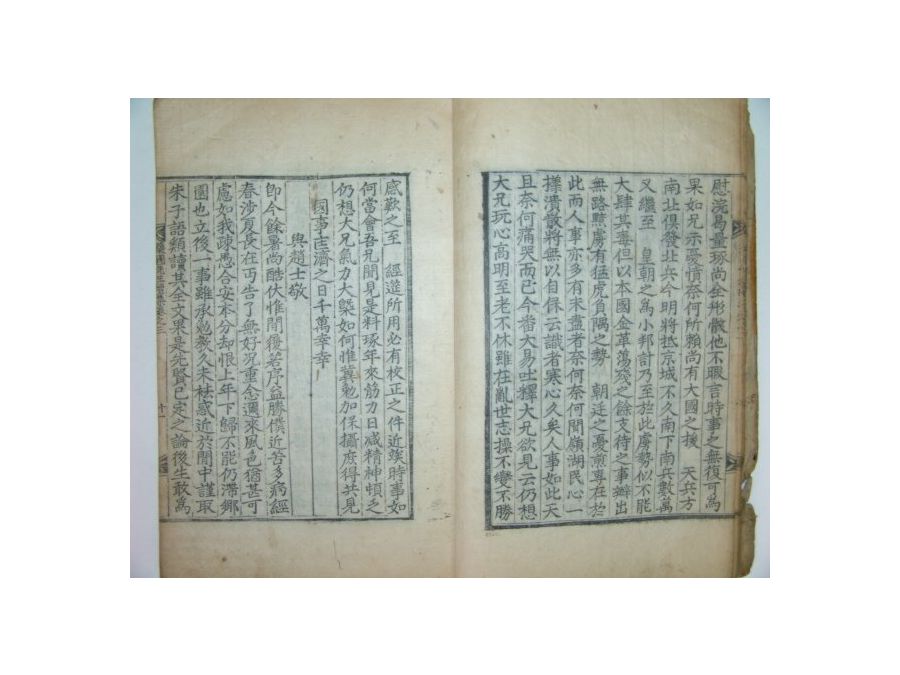 慰浣曷量琢尚全形骸他不暇言時事之無復可爲
果如兄示憂憤奈何所賴尚有大國之援 天兵方
南北俱發北兵今明將抵京城不久南下南兵數萬
又繼至 皇朝之爲小邦計乃至於此虜勢似不能
大肆其毒但以本國金革蕩殘之餘支待之事辦出
無路黠虜有猛虎負隅之勢 朝廷之憂煎專在於
此而人事亦多有未盡者奈何奈何聞嶺湖民心一
㨾潰散將無以自保云識者寒心久矣人事如此天
且奈何痛哭而已今番大易吐釋大兄欲見云仍想
大兄玩心高明至老不休雖在亂世志操不變不勝
感歎之至 經筵所用必有校正之件近竢時事如
何當會吾兄聞見是料琢年來筋力日减精神頓乏
仍想大兄氣力大槩如何惟冀勉加保攝庶得共見
國事匡濟之日千萬幸幸
與趙士敬
卽今餘暑尚酷伏惟閒履若序益勝僕近苦多病經
春涉夏長在丐告了無好况重念邇來風色猶甚可
慮如我疎愚合安本分却恨上年下歸不能仍滯鄉
園也立後一事雖承勉教久未枯感近於閒中謹取
朱子語類讀其全文果是先賢已定之論後生敢爲
先生
集卷之三
十一